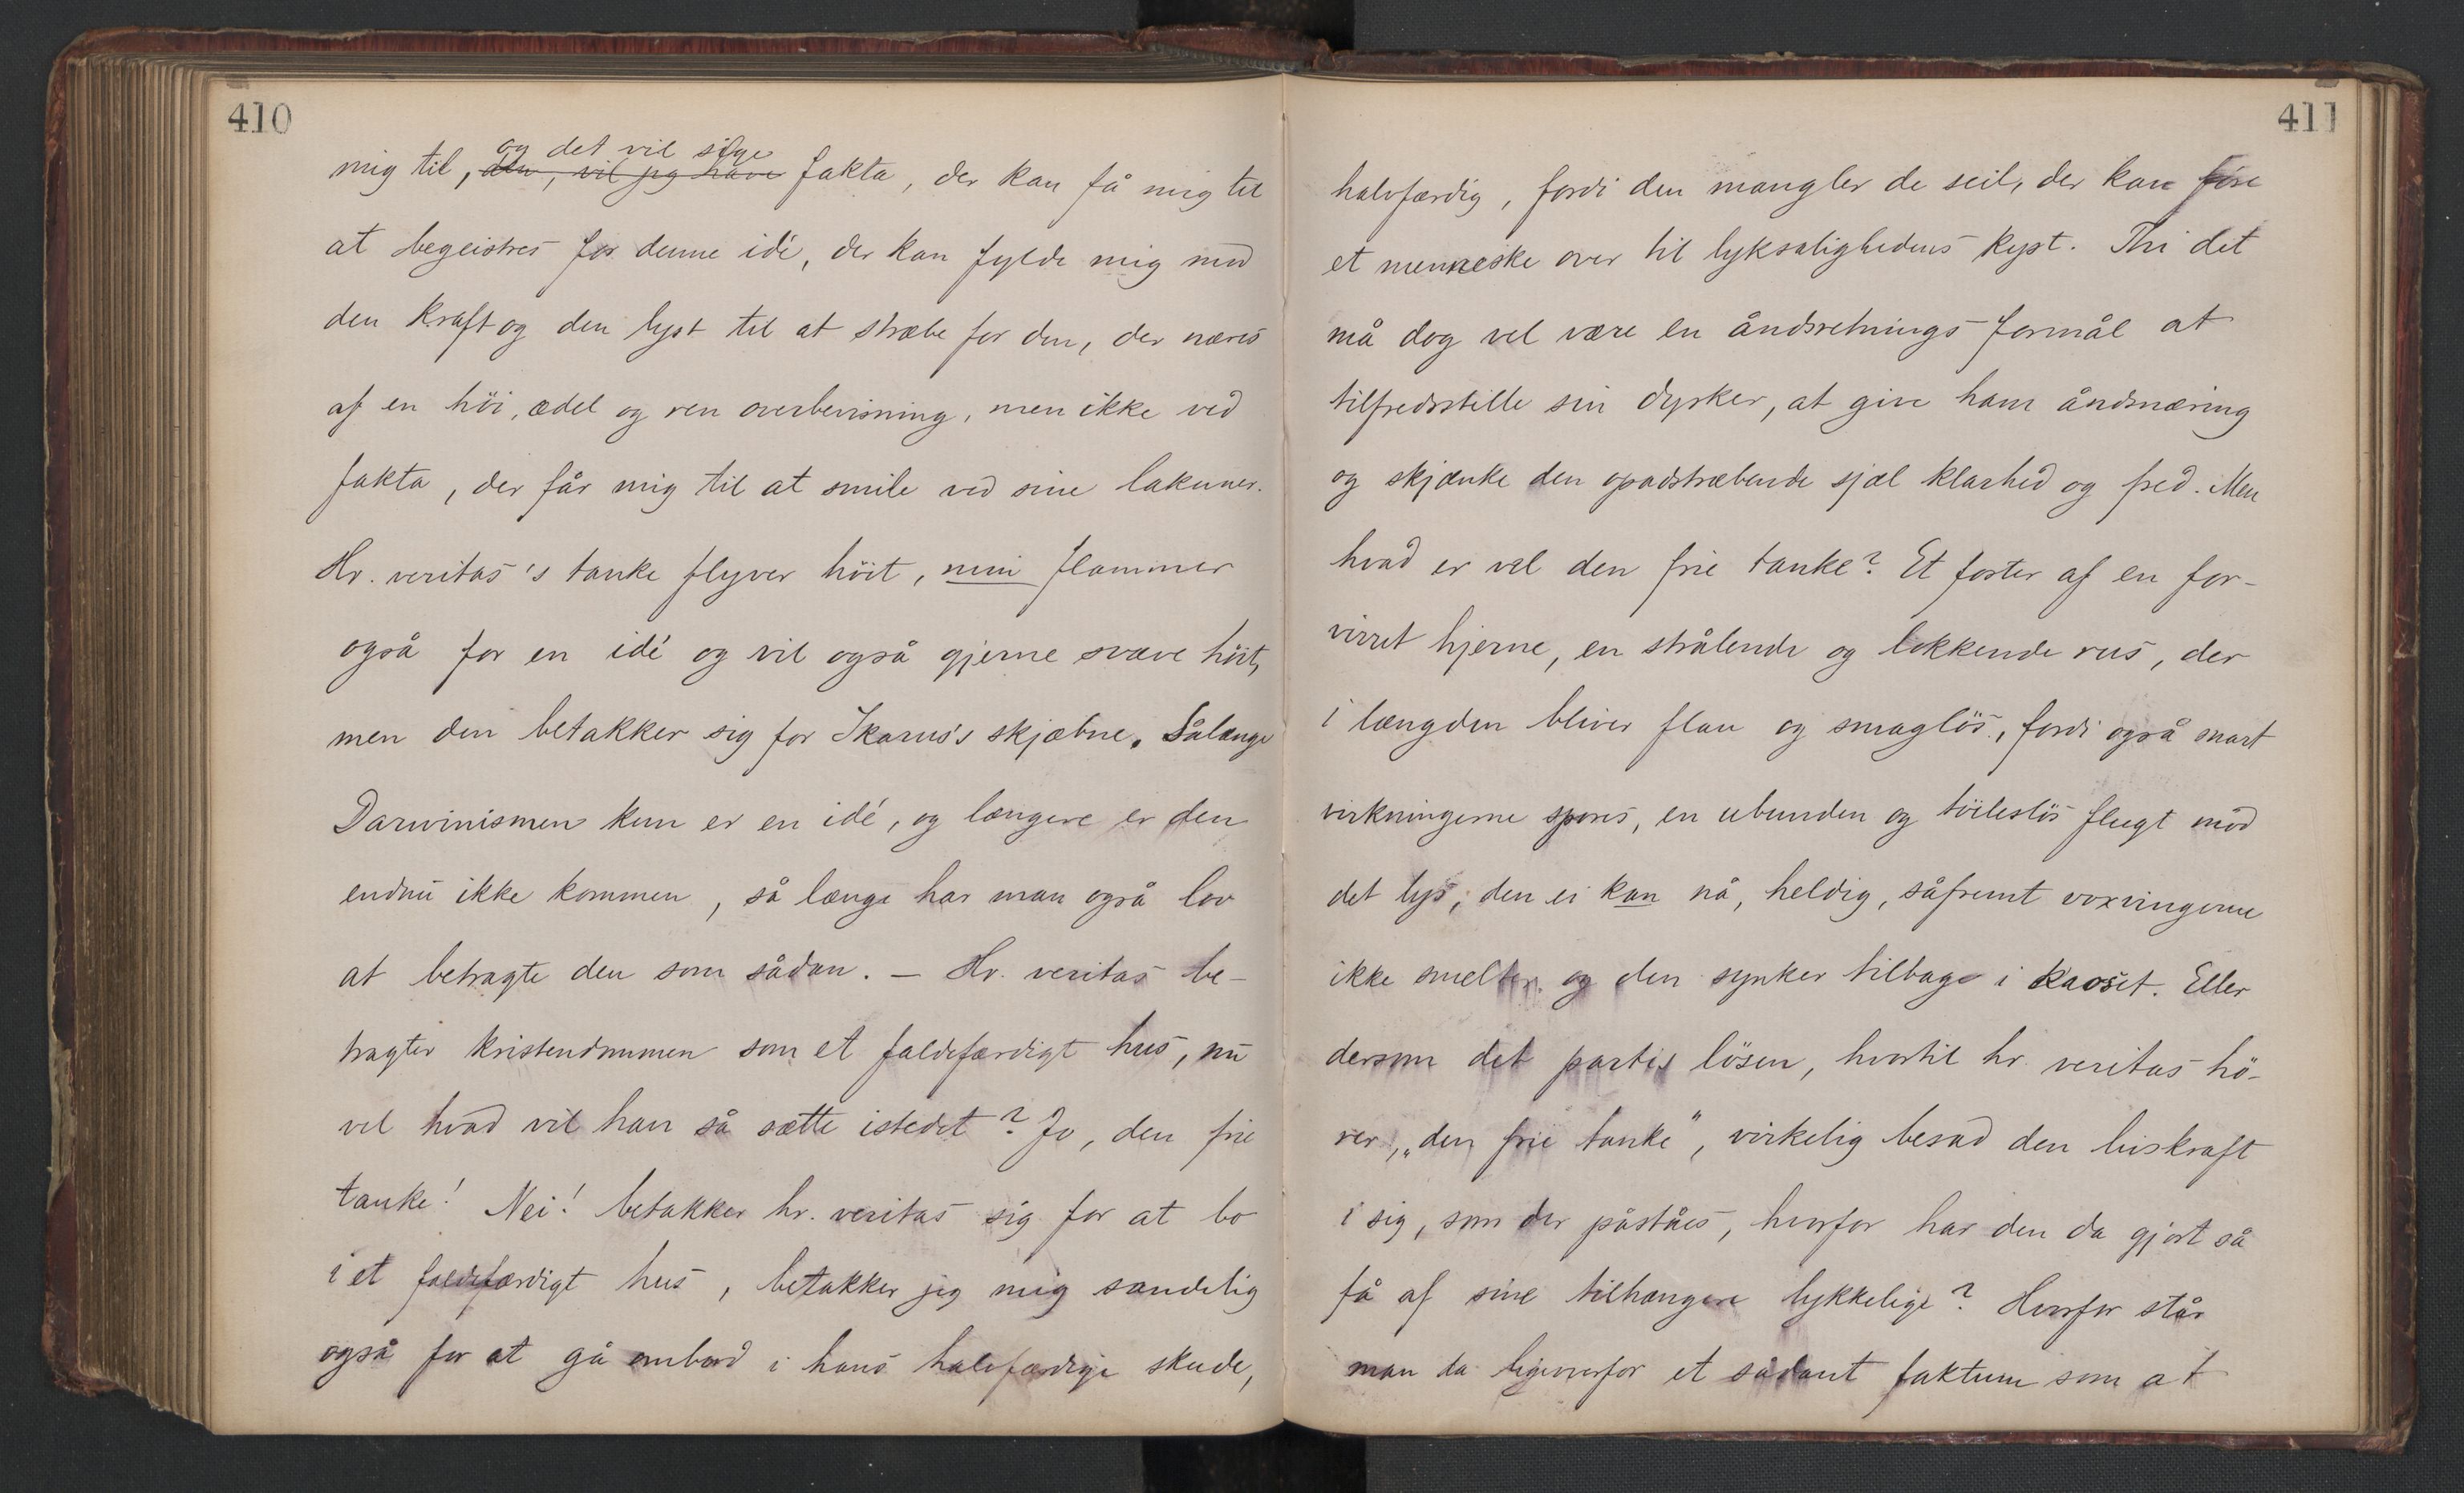 410
mig til, og det vil sige
den, vil jeg have fakta, der kan få mig til
at begeistres for denne idé, der kan fylde mig med
den kraft og den lyst til at stræbe for den, der næres
af en höi, ædel og ren overbevisning, men ikke ved
fakta, der får mig til at smile ved sine lakuner.
Hr. veritas's tanke flyver höit, min flammer
også for en idé og vil også gjerne svæve höit,
men den betakker sig for Ikarus's skjæbne. Sålænge
Darwinismen kun er en idé, og længere er den
endnu ikke kommen, så længe har man også lov
at betragte den som sådan. – Hr. veritas be-
tragter kristendommen som et faldefærdigt hus, nu
vel hvad vil han så sætte istedet? Jo, den frie
tanke! Nei! betakker hr. veritas sig for at bo
i et faldefærdigt hus, betakker jeg mig sandelig
også for at gå ombord i hans halvfærdige skude,
411
halvfærdig, fordi den mangler de seil, der kan före
et menneske over til lyksalighedens kyst. Thi det
må dog vel være en åndsretnings formål at
tilfredsstille sin dyrker, at give ham åndsnæring
og skjænke den opadstræbende sjæl klarhed og fred. Men
hvad er vel den frie tanke? Et foster af en for-
virret hjerne, en strålende og lokkende rus, der
i længden bliver flau og smaglös, fordi også snart
virkningerne spores, en ubunden og töileslös flugt mod
det lys, den ei kan nå, heldig, såfremt voxvingerne
ikke smelter og den synker tilbage i kaoset. Eller
dersom det partis lösen, hvortil hr. veritas hö-
rer, „den frie tanke", virkelig besad den livskraft
i sig, som der påståes, hvorfor har den da gjort så
få af sine tilhængere lykkelige? Hvorfor står
man da ligeoverfor et sådant faktum som at